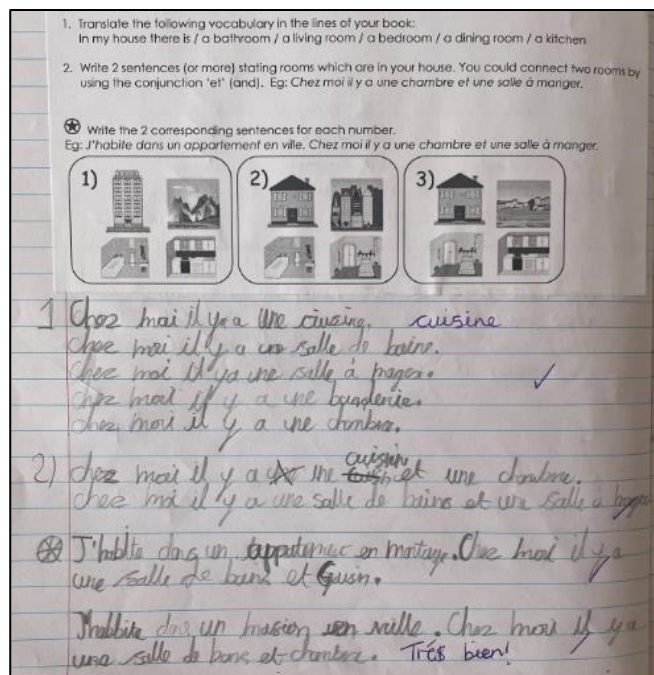 1. Translate the following vocabulary in the lines of your book:
In my house there is / a bathroom / a living room / a bedroom / a dining room / a kitchen
2. Write 2 sentences (or more) stating rooms which are in your house. You could connect two rooms by
using the conjunction 'et' (and). Eg: Chez moi il y a une chambre et une salle à manger.
Write the 2 corresponding sentences for each number.
Eg: J'habite dans un appartement en ville. Chez moi il y a une chambre et une salle à manger.
1) 2) 3)
1 Chez moi il y a une ciusine. cuisine
chez moi il y a une salle de baine.
chez moi il y a une salle à
chez moi il y a une
chez moi il y a une chambre.
2) chez moi il y a une cuisine et une chambre.
chez moi il y a une salle de bains et une salle a
J'habite dans un en montage. Chez moi il y a
une salle de bans et Cuisn.
J'habbite dans un masion en ville. Chez moi il y a
une salle de bans et chambre. Trés bien!